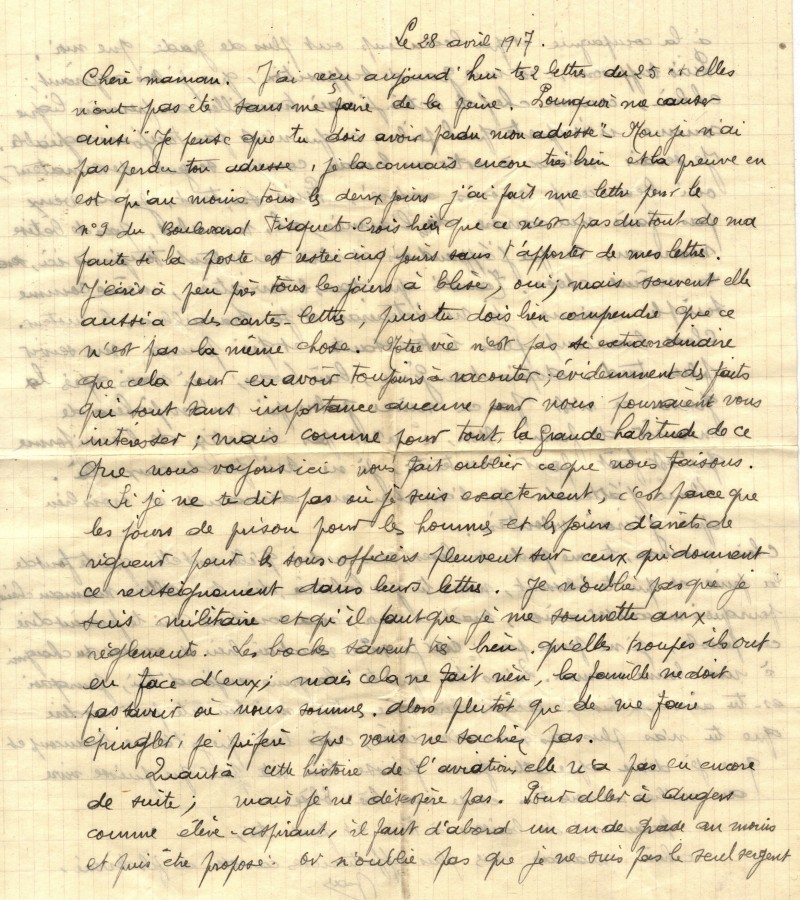 Le 28 avril 1917.
Chère maman. J'ai reçu aujourd'hui tes 2 lettres du 25 et elles
n'ont pas été sans me faire de la peine. Pourquoi me causer
ainsi "Je pense que tu dois avoir perdu mon adresse". Non je n'ai
pas perdu ton adresse, je la connais encore très bien et la preuve en
est qu'au moins tous les deux jours j'ai fait une lettre pour le
n°9 du Boulevard Fisquet. Crois bien que ce n'est pas du tout de ma
faute si la poste est restée cinq jours sans t'apporter de mes lettre.
J'écris à peu près tous les jours à Elise, oui; mais souvent elle
aussi a des cartes-lettres, puis tu dois bien comprendre que ce
n'est pas la même chose. Notre vie n'est pas si extraordinaire
que cela pour en avoir toujours à raconter; évidemment des faits
qui sont sans importance aucune pour nous pourraient vous
intéresser; mais comme pour tout, la grande habitude de ce
que nous voyons ici nous fait oublier ce que nous faisons.
Si je ne te dit pas où je suis exactement, c'est parce que
les jours de prison pour les hommes et les jours d'arrêts de
rigueur pour les sous-officiers pleuvent sur ceux qui donnent
ce renseignement dans leurs lettre. Je n'oublie pas que je
suis militaire et qu'il faut que je me soumette aux
règlements. Les boches savent très bien qu'elles troupes ils ont
en face d'eux; mais cela ne fait rien, la famille ne doit
pas savoir où nous sommes. Alors plutôt que de me faire
épingler, je préfère que vous ne sachiez pas.
Quant à cette histoire de l'aviation, elle n'a pas eu encore
de suite; mais je ne désespère pas. Pour aller à Angers
comme élève-aspirant, il faut d'abord un an de grade au moins
et puis être proposé. Or n'oublie pas que je ne suis pas le seul sergent